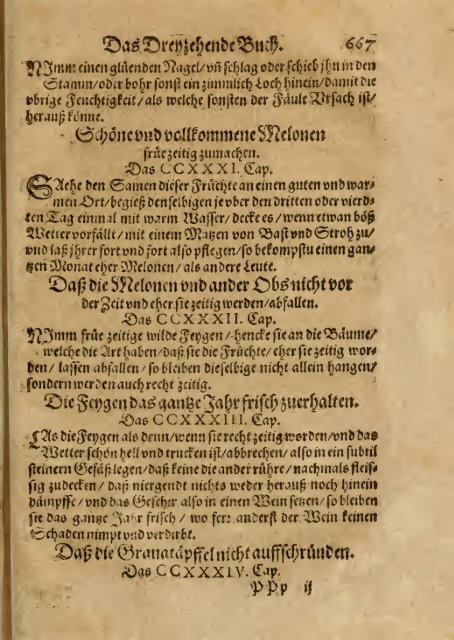 Das Dreyzehende Buch. 667
NImm einen glüenden Nagel/ vñ schlag oder schieb jhn in den
Stamm/ oder bohr sonst ein zimmlich Loch hinein/ damit die
vbrige Feuchtigkeit/ als welche sonsten der Fäule Vrsach ist/
herauß könne.
Schöne vnd vollkommene Melonen
früezeitig zumachen.
Das CCXXXI. Cap.
SAehe den Samen dieser Früchte an einen guten vnd war-
men Ort/ begieß denselbigen je vber den dritten oder vierd-
ten Tag einmal mit warm Wasser/ decke es/ wenn etwan böß
Wetter vorfällt/ mit einem Matzen von Bast vnd Stroh zu/
vnd laß jhrer fort vnd fort also pflegen/ so bekompstu einen gan-
tzen Monat eher Melonen/ als andere Leute.
Daß die Melonen vnd ander Obs nicht vor
der Zeit vnd eher sie zeitig werden/ abfallen.
Das CCXXXII. Cap.
NImm früe zeitige wilde Feygen/ hencke sie an die Bäume/
welche die Art haben/ daß sie die Früchte/ eher sie zeitig wor-
den/ lassen abfallen/ so bleiben dieselbige nicht allein hangen/
sondern werden auch recht zeitig.
Die Feygen das gantze Jahr frisch zuerhalten.
Das CCXXXIII. Cap.
LAs die Feygen als denn/ wenn sie recht zeitig worden/ vnd das
Wetter schön hell vnd trucken ist/ abbrechen/ also in ein subtil
steinern Gefäß legen/ daß keine die ander rühre/ nachmals fleis-
sig zudecken/ daß niergendt nichts weder herauß noch hinein
dämpffe/ vnd das Geschirr also in einen Wein setzen/ so bleiben
sie das gantze Jahr frisch/ wo fern anderst der Wein keinen
Schaden nimpt vnd verdirbt.
Daß die Granatäpffel nicht auffschründen.
Das CCXXXIV. Cap.
PPp ij